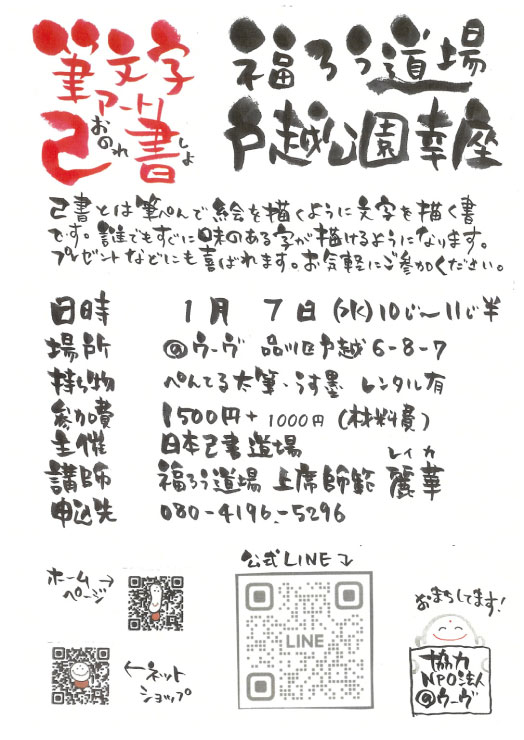 筆文字
アート!
己書
おのれ しょ
福ろう道場
戸越公園幸座
己書とは筆ぺんで絵を描くように文字を描く書
です。誰でもすぐに味のある字が描けるようになります。
プレゼントなどにも喜ばれます。お気軽にご参加ください。
日時 1月 7日(水)10じ〜11じ半
場所 @ウーヴ 品川区戸越6-8-7
持ち物 ぺんてる太筆・うす墨 レンタル有
参加費 1500円+1000円(材料費)
主催 日本己書道場
レイカ
講師 福ろう道場 上席師範 麗華
申込先 080-4196-5296
公式LINE
ホーム
ページ
LINE
ネット
ショップ
おまちしてます!
協力
NPO法人
@ウーヴ